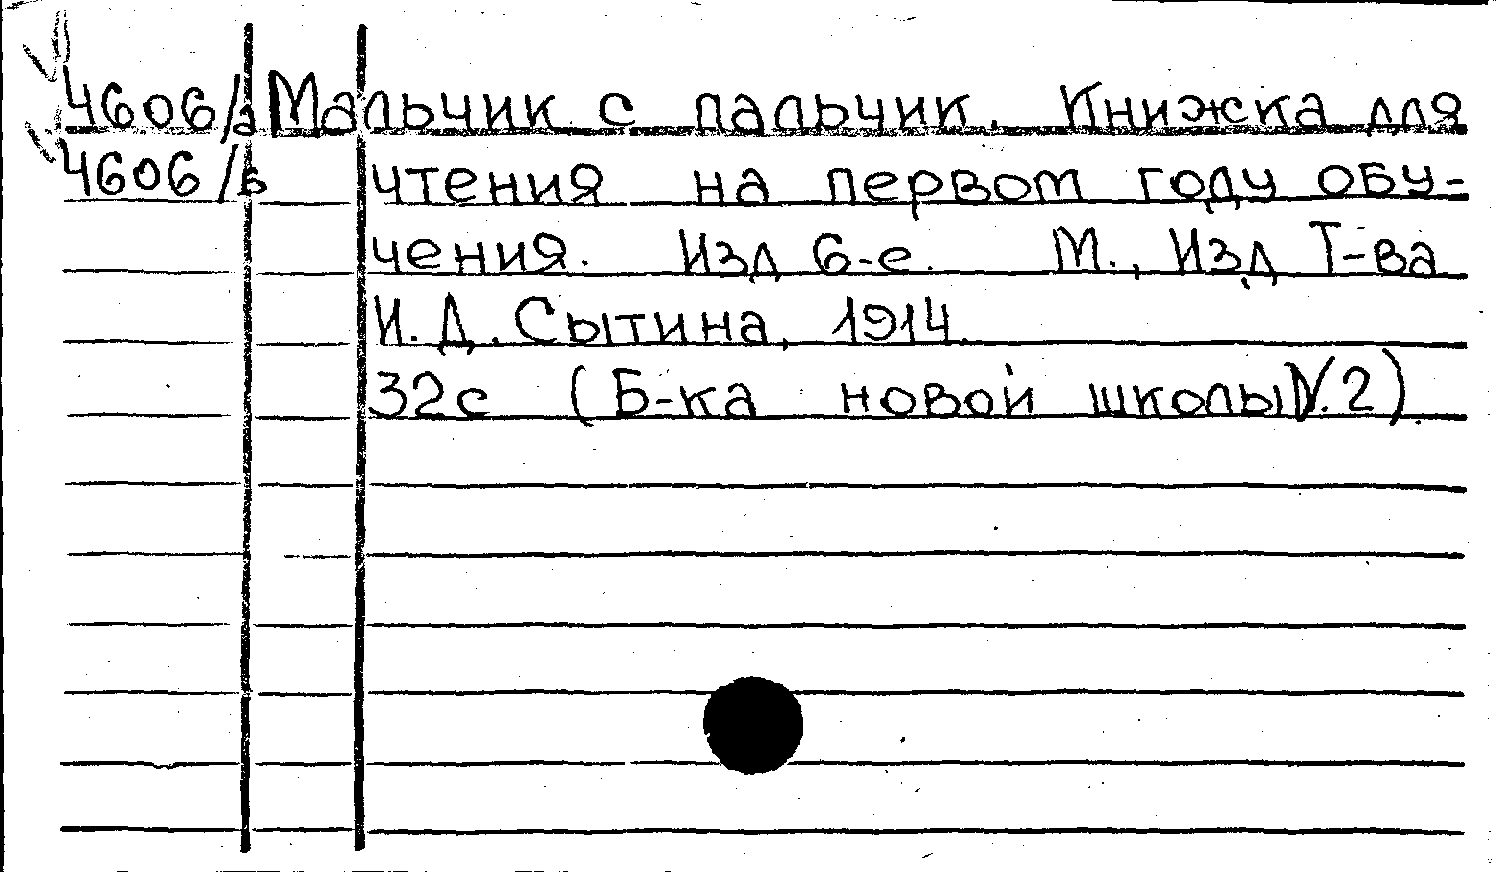 4606/а Мальчик с пальчик. Книжка для
4606/в чтения на первом году обу-
чения. Изд 6-е. М., Изд Т-ва
И. Д. Сытина, 1914.
32с (Б-ка новой школы N.2).